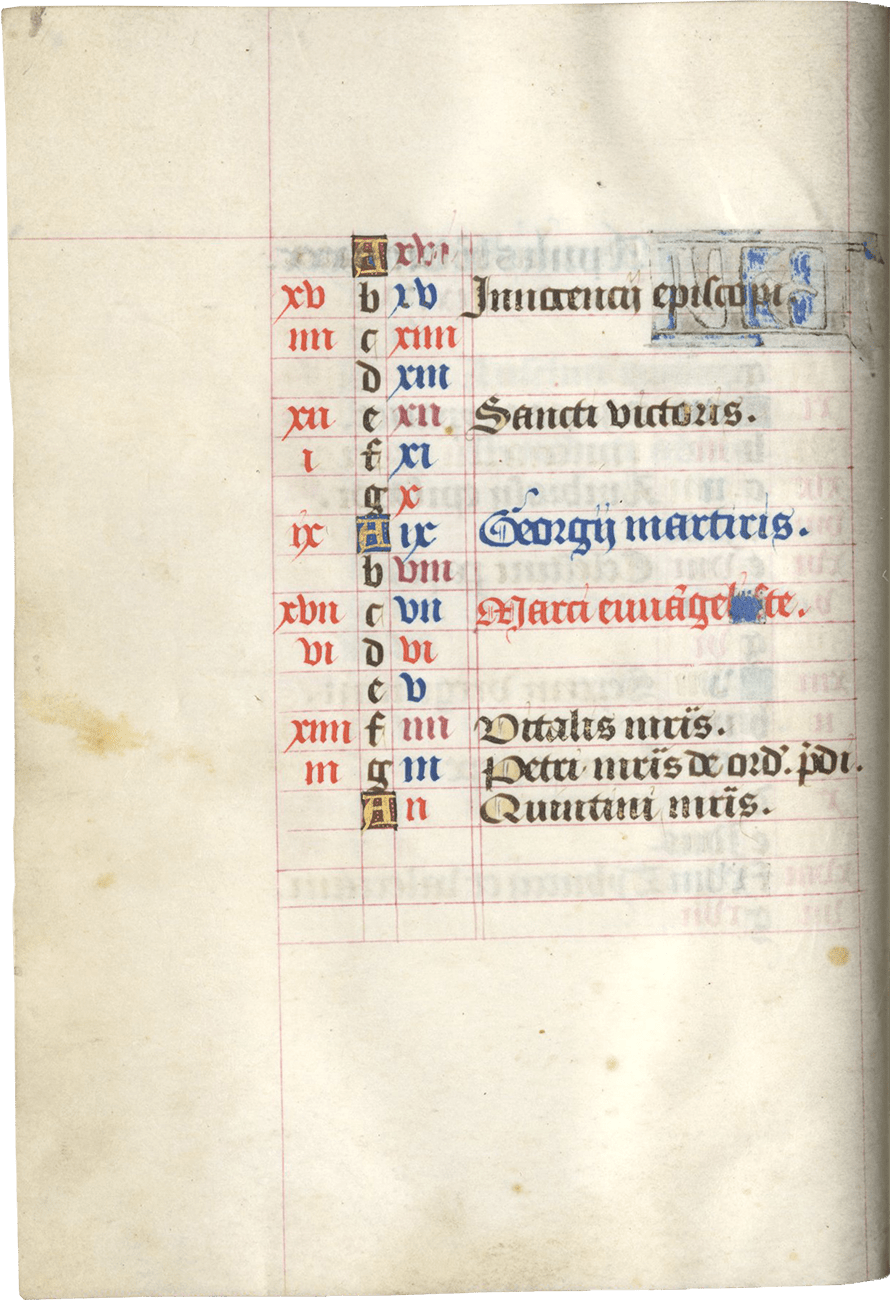 A xvi
xv b xv Innocencij episcopi.
iiii c xiiii
d xiii
xii e xii Sancti victoris.
i f xi
g x
ix A ix Georgij martiris.
b viii
xvii c vii Marci euuãgeliste.
vi d vi
e v
xiiii f iiii Vitalis mr̃is.
iii g iii Petri mr̃is de ord'. p̃di.
A ii Quintini mr̃is.